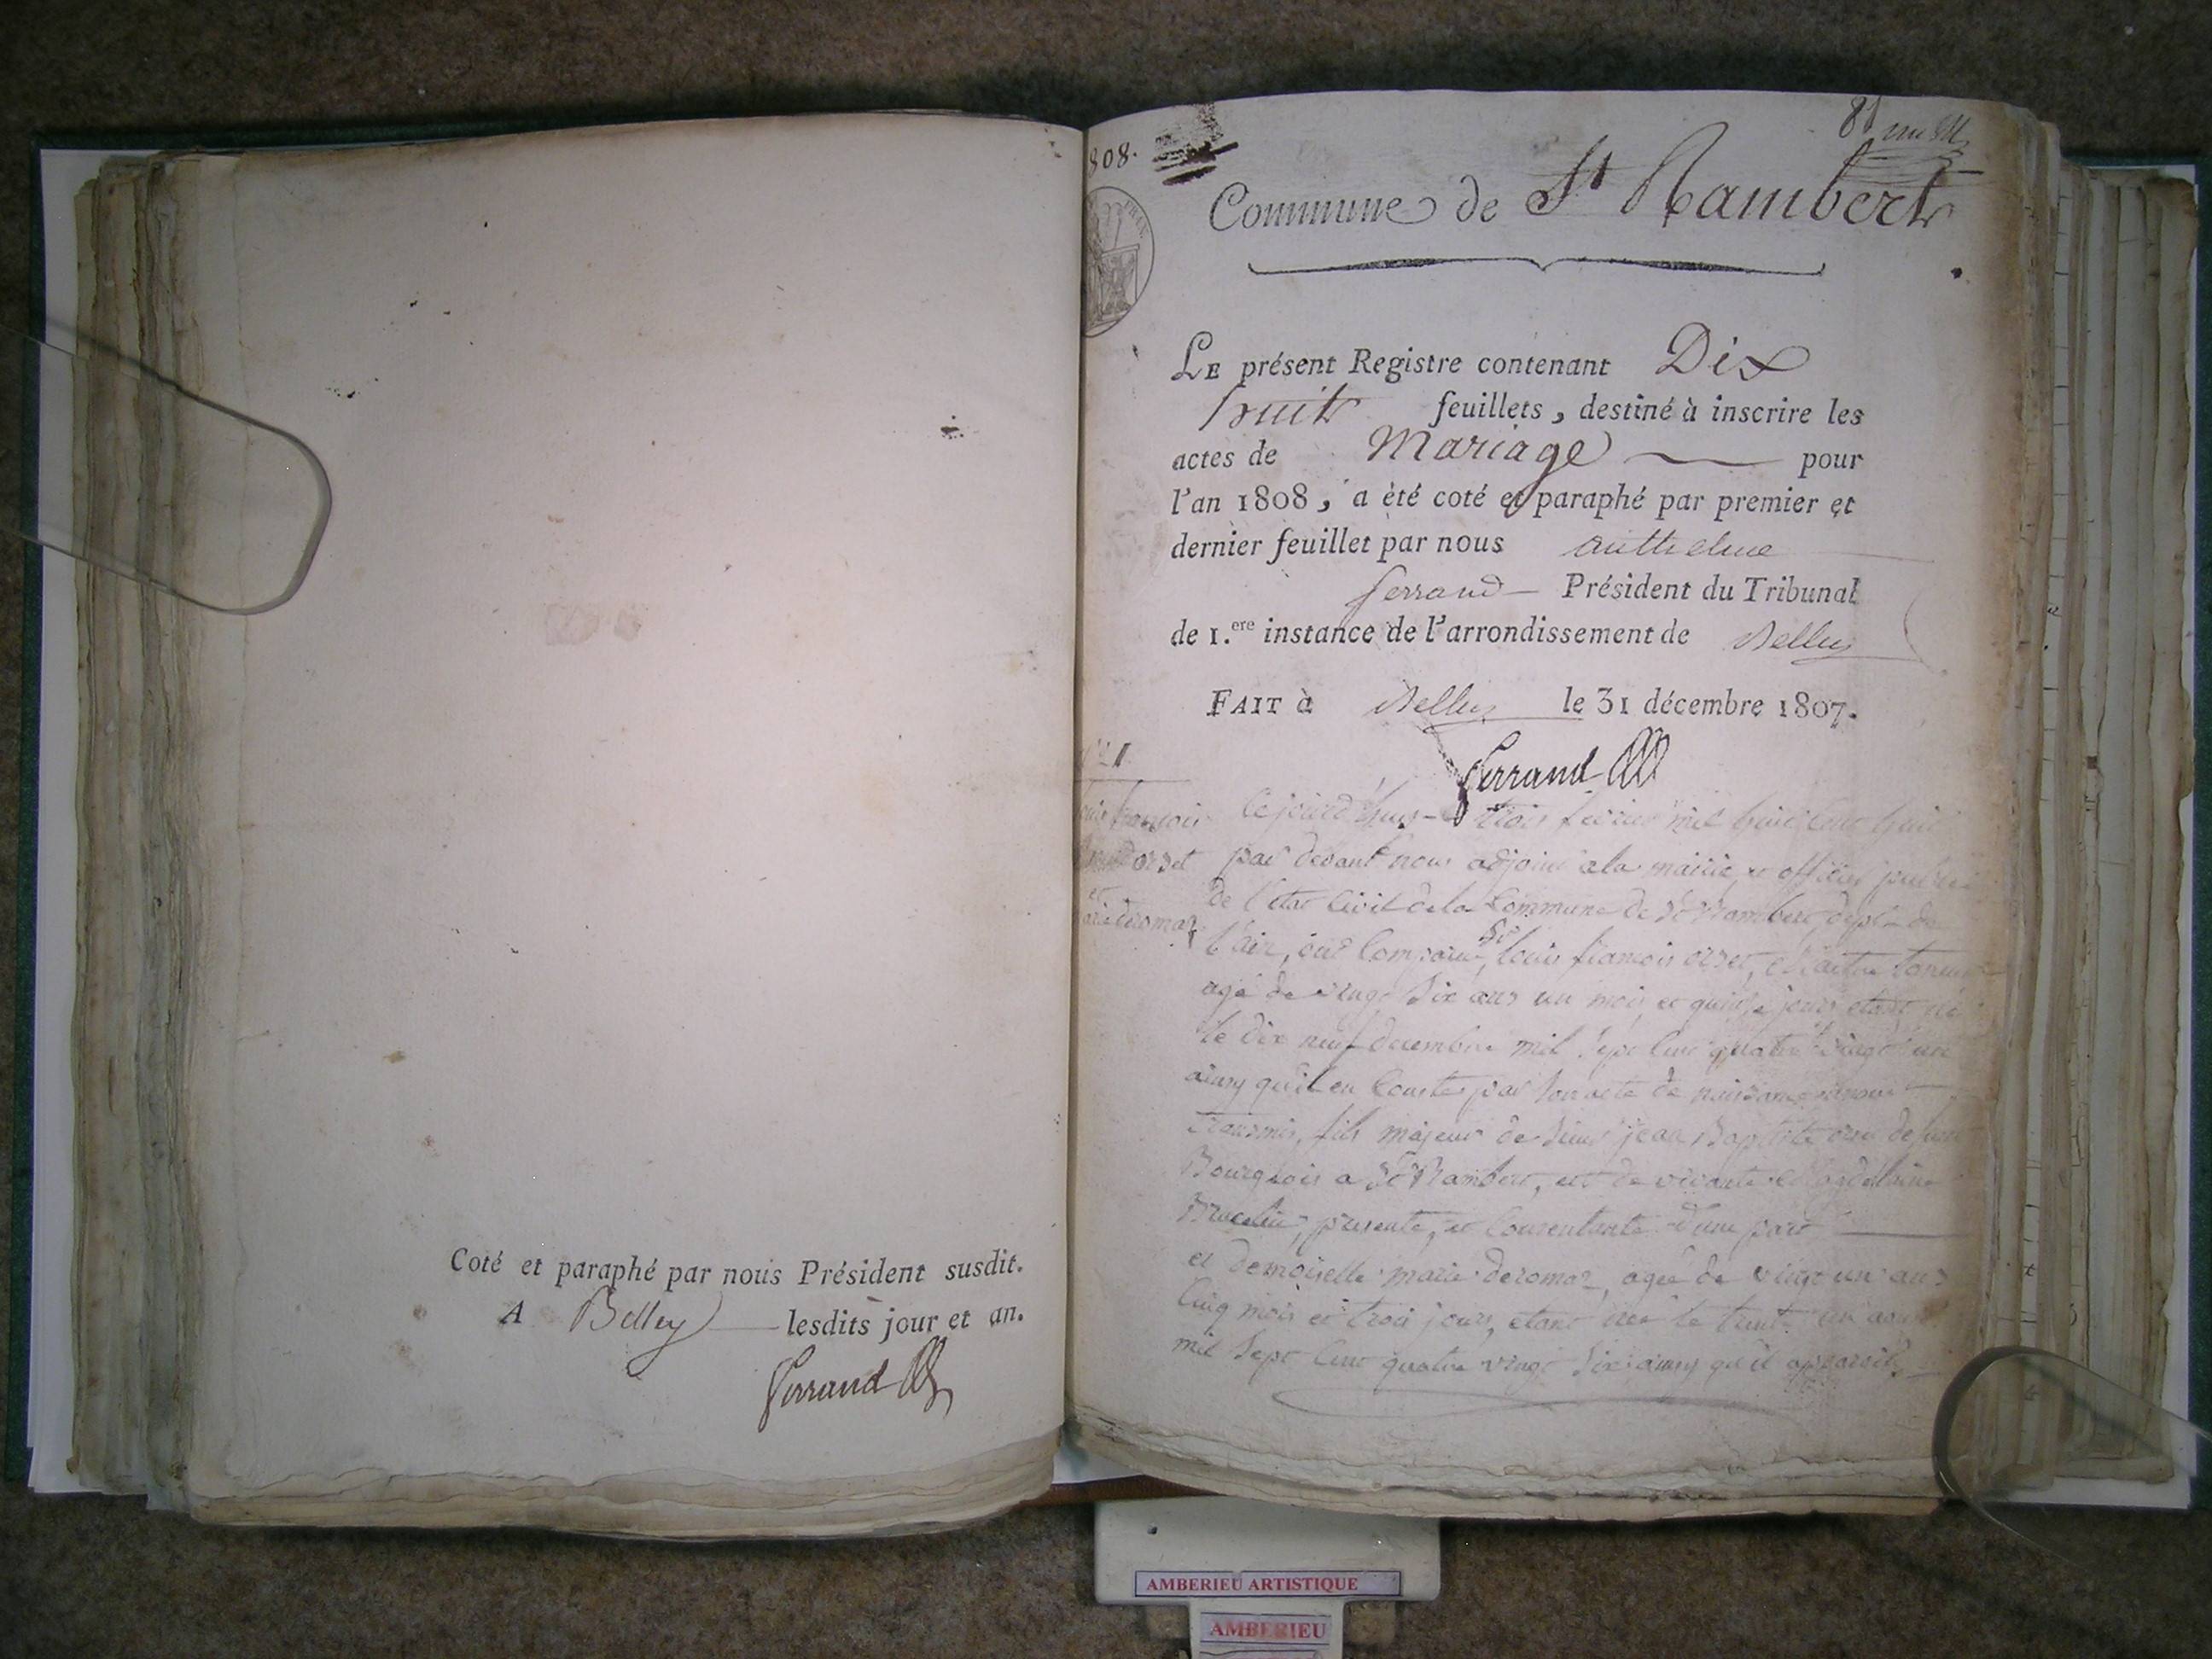 Coté et paraphé par nous Président susdit.
A Belley lesdits jour et an.
Ferrand
808.
81
Commune de St Rambert
LE présent Registre contenant Dix
huit feuillets, destiné à inscrire les
actes de Mariage pour
l'an 1808, a été coté et paraphé par premier et
dernier feuillet par nous Anthelme
ferrand Président du Tribunal
de 1.ere instance de l'arrondissement de Belley
FAIT à Belley le 31 décembre 1807.
Ferrand
1
françois
orset
et
deromas
Cejourd'huy trois fevrier mil huit cent huit
par devant nous adjoint a la mairie et officier public
de l'état Civil de la Commune de St Rambert, dept de
l'ain, est Comparu Sr louis francois orset, Maitre tanneur
agé de vingt Six ans un mois et quinze jours etant né
le dix neuf decembre mil Sept Cent quatre vingt un
ainsy qu'il en Conste par Son acte de naissance
transmis, fils majeur de Sieur jean Baptiste defunt
Bourgeois a St Rambert, et de vivante Magdelaine
presente, et Consentante d'une part
et demoiselle marie deromas, agée de vingt un ans
Cinq mois et trois jours, etant née le trente un aout
mil Sept Cent quatre vingt Six ainsy qu'il apparoit
AMBERIEU ARTISTIQUE
AMBERIEU